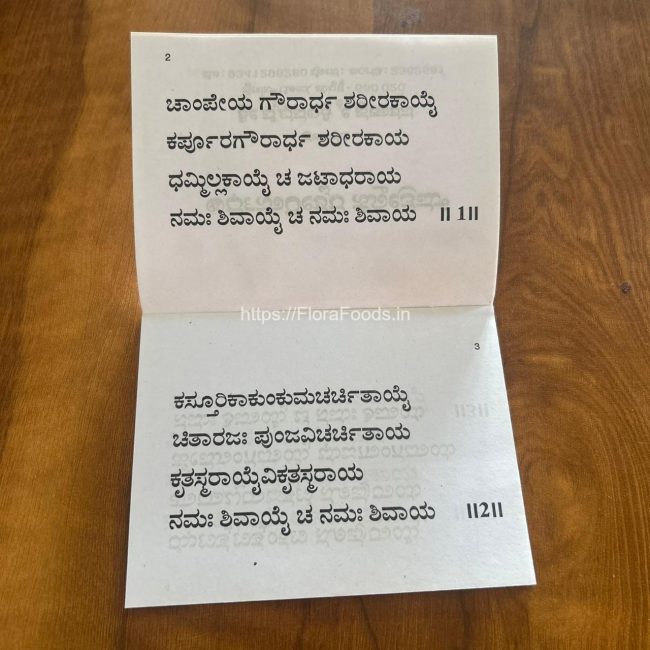 2
ಚಾಂಪೇಯ ಗೌರಾರ್ಧ ಶರೀರಕಾಯೈ
ಕರ್ಪೂರಗೌರಾರ್ಧ ಶರೀರಕಾಯ
ಧಮ್ಮಿಲ್ಲಕಾಯೈ ಚ ಜಟಾಧರಾಯ
ನಮಃ ಶಿವಾಯೈ ಚ ನಮಃ ಶಿವಾಯ ॥ 1॥
https://FloraFoods.in
3
ಕಸ್ತೂರಿಕಾಕುಂಕುಮಚರ್ಚಿತಾಯೈ
ಚಿತಾರಜಃ ಪುಂಜವಿಚರ್ಚಿತಾಯ
ಕೃತಸ್ಮರಾಯೈವಿಕೃತಸ್ಮರಾಯ
ನಮಃ ಶಿವಾಯೈ ಚ ನಮಃ ಶಿವಾಯ ॥2॥